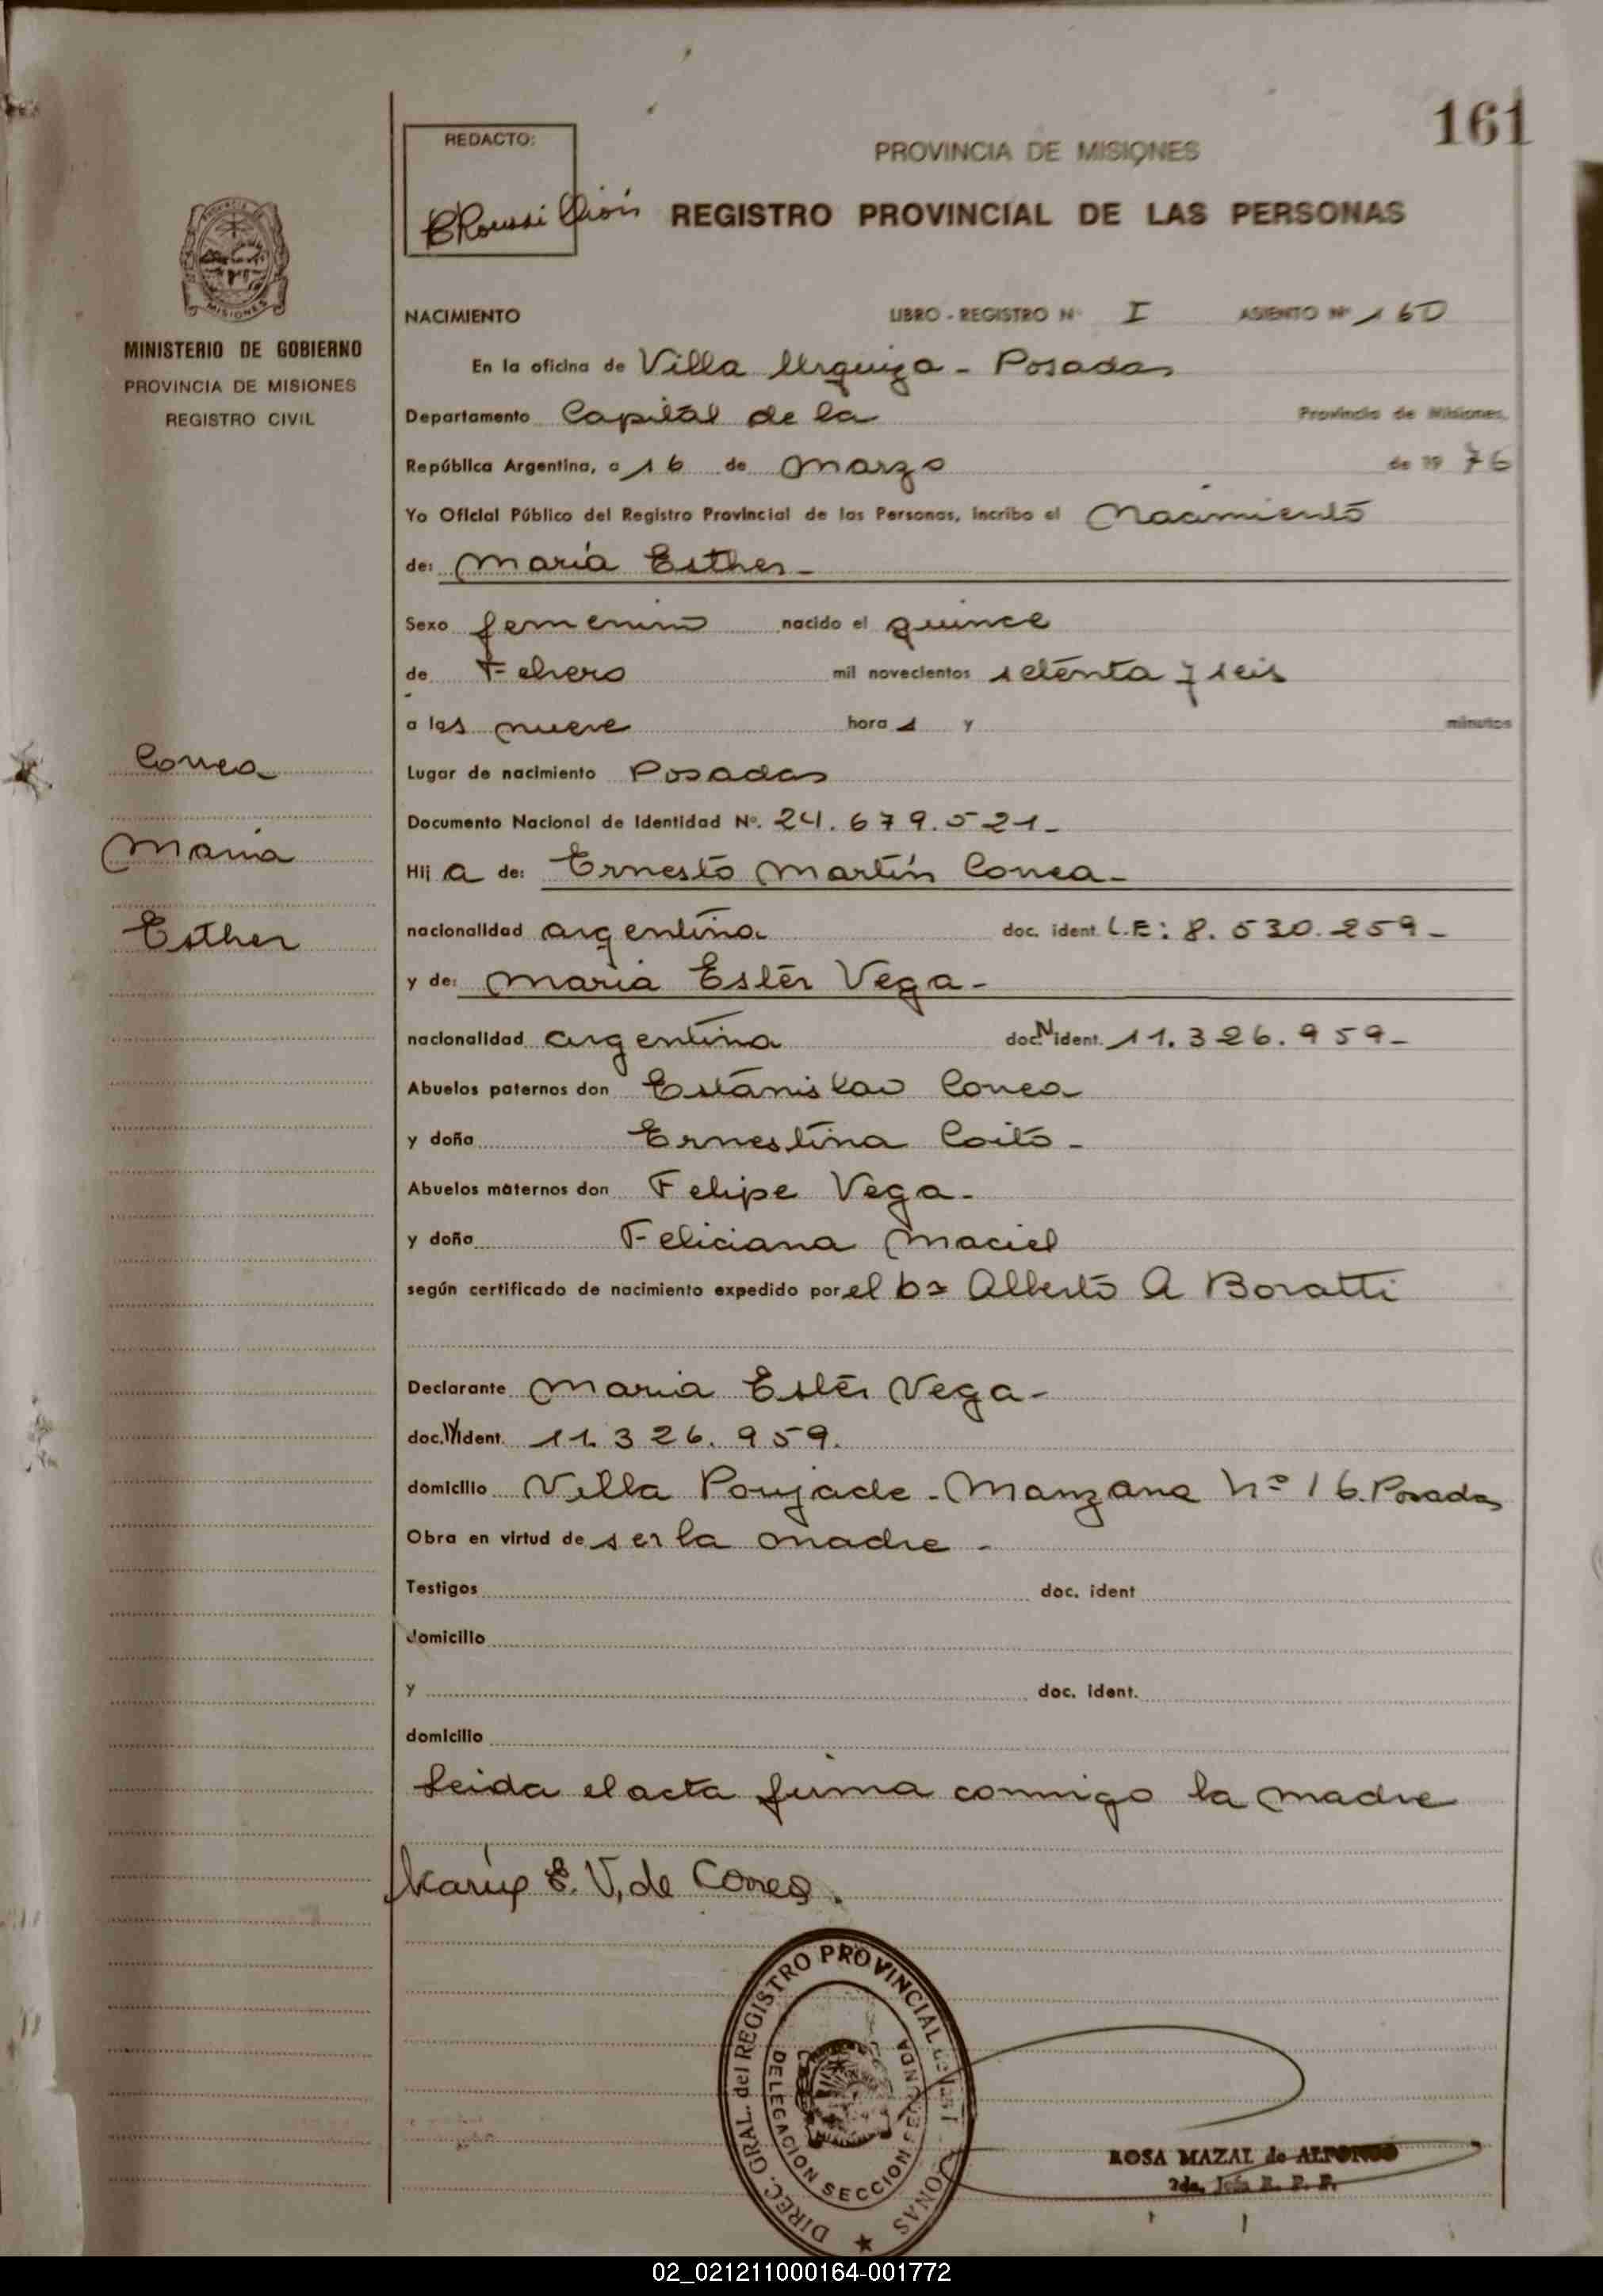 161
REDACTO:
PROVINCIA DE MISIONES
REGISTRO PROVINCIAL DE LAS PERSONAS
MISIONES
MINISTERIO DE GOBIERNO
PROVINCIA DE MISIONES
REGISTRO CIVIL
NACIMIENTO LIBRO - REGISTRO Nº I ASIENTO Nº 160
En la oficina de Villa Urquiza - Posadas
Departamento Capital de la Provincia de Misiones,
República Argentina, a 16 de Marzo de 19 76
Yo Oficial Público del Registro Provincial de las Personas, incribo el Nacimiento
de: María Esther -
Sexo femenino nacido el quince
de Febrero mil novecientos setenta y seis
a las nueve hora s y minutos
Lugar de nacimiento Posadas
Documento Nacional de Identidad Nº. 24.679.521-
Correa
María
Esther
Hij a de: Ernesto Martín Correa -
nacionalidad argentina doc. ident. L.E: 8.530.259-
y de: María Ester Vega -
nacionalidad argentina doc. N. ident. 11.326.959-
Abuelos paternos don Estanislao Correa
y doña Ernestina Coito -
Abuelos maternos don Felipe Vega -
y doña Feliciana Maciel
según certificado de nacimiento expedido por el Dr Alberto A Boratti
Declarante María Ester Vega -
doc. N ident. 11.326.959.
domicilio Villa Poujade - Manzana Nº 16. Posadas
Obra en virtud de ser la madre -
Testigos doc. ident
domicilio
y doc. ident.
domicilio
Leida el acta firma conmigo la madre
E. V. de Correa.
DIREC. GRAL. del REGISTRO PROVINCIAL de las PERSONAS
DELEGACION SECCION SEGUNDA
ROSA MAZAL de ALFONSO
2da. Jefa R. P. P.
02_021211000164-001772